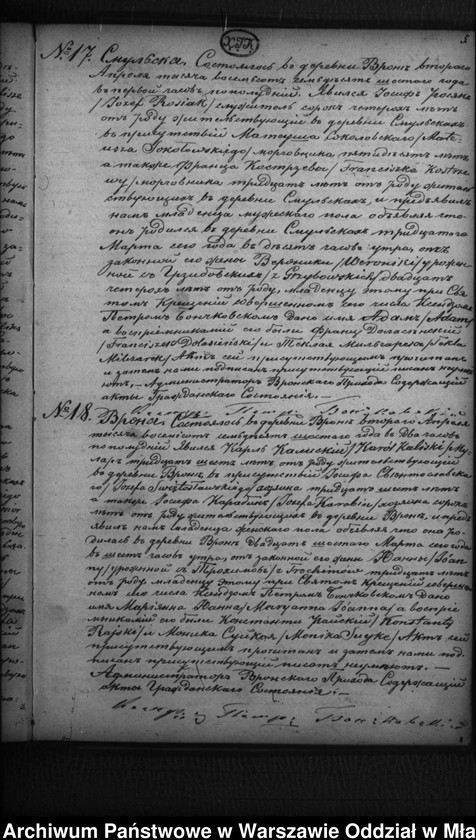 № 17. Смульска. Состоялось въ деревни Вронѣ втораго
Апрѣля тысяча восемьсотъ семьдесятъ шестого года
въ первой часовъ пополудни. Явился Іосифъ Росякъ
/Józef Rosiak/ служитель сорокъ четырехъ лѣтъ
отъ роду жительствующій въ деревни Смульскахъ
въ присутствіи Матеуша Соколовскаго /Mate-
usza Sokołowskiego/ морговника пятидесятъ лѣтъ
а также Франца Кострзевы /Franciszka Kostrze
wy/ морговника тридцать лѣтъ отъ роду житель
ствующихъ въ деревни Смульскахъ, и предъявилъ
намъ младенца мужескаго пола объявляя что
онъ родился въ деревни Смульскахъ тридцатаго
Марта сего года въ часовъ утра, отъ
законной его жены Вероники /Weroniki/ урожден
ной съ Грзибовскихъ /z Grzybowskich/ двадцать
четырехъ лѣтъ отъ роду, младенцу этому при Свя
томъ Крещеніи совершенномъ сего числа Ксендзомъ
Петромъ Бончковскимъ дано имя Адамъ /Adam/
а воспріемниками его были Францъ
/Franciszek / и Текля /Tekla
/ Актъ сей присутствующимъ прочитанъ
и затемъ нами подписанъ присутствующій писать неумѣ
ютъ. — Администраторъ Вронскаго Прихода Содержащій
акты Гражданскаго Состоянія. —
Ксендзъ Петръ Бончковскій
№ 18. Врона. Состоялось въ деревни Вронѣ втораго Апрѣля
тысяча восемьсотъ семьдесятъ шестого года въ два часовъ
пополудни. Явился Карлъ /Karol /
тридцать шесть лѣтъ отъ роду жительствующій
въ деревни Вронѣ, въ присутствіи Іосифа
тридцать лѣтъ
а также Іосифа /Józefa / сорокъ
лѣтъ отъ роду жительствующихъ въ деревни Вронѣ, и предъ
явилъ намъ младенца женскаго пола объявляя что она ро
дилась въ деревни Вронѣ двадцать шестого Марта сего года
въ шесть часовъ утра, отъ законной его жены Іоанны /Joan
ny/ урожденной тридцать лѣтъ
отъ роду, младенцу этому при Святомъ Крещеніи соверше
номъ сего числа Ксендзомъ Петромъ Бончковскимъ дано
имя Маріянна Іоанна /Maryanna Joanna/ а воспріе
мниками его были Константы Райскій /Konstanty
Rajski/ и Моника /Monika / Актъ сей
присутствующимъ прочитанъ и затемъ нами под
писанъ присутствующій писать неумѣютъ. —
Администраторъ Вронскаго Прихода Содержащій
акты Гражданскаго Состоянія. —
Ксендзъ Петръ Бончковскій
Archiwum Państwowe w Warszawie Oddział w Mła